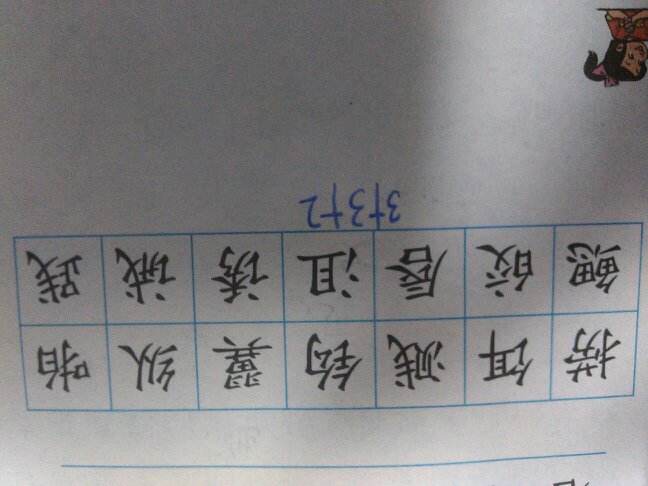 捞饵溅钩翼纵啪
鳃皎唇沮诱诫践
3+3+2